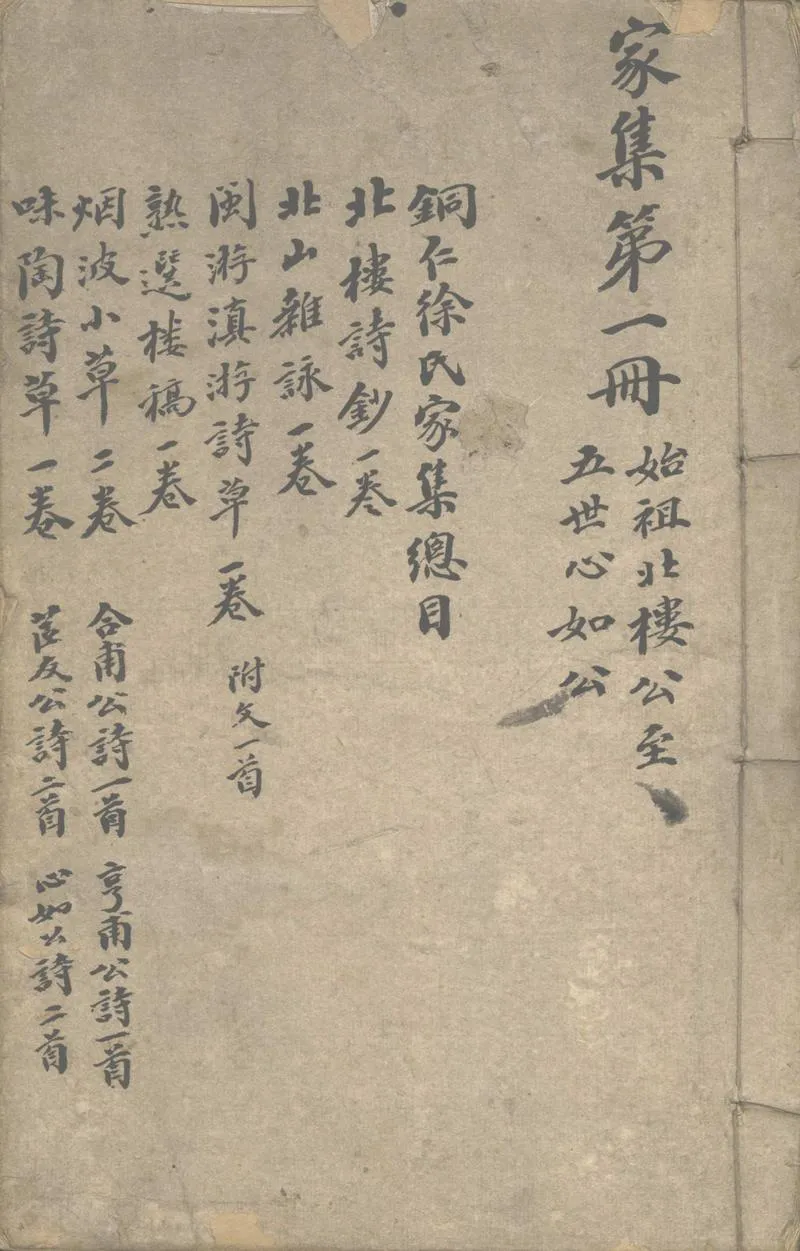 家集第一冊
始祖北樓公至
五世心如公
銅仁徐氏家集總目
北樓詩鈔一卷
北山雜詠一卷
閩游滇游詩草一卷 附文一首
熟選楼稿一卷
烟波小草二卷
合甫公詩一首 亨甫公詩一首
味陶詩草一卷
友公詩二首 心如公詩二首